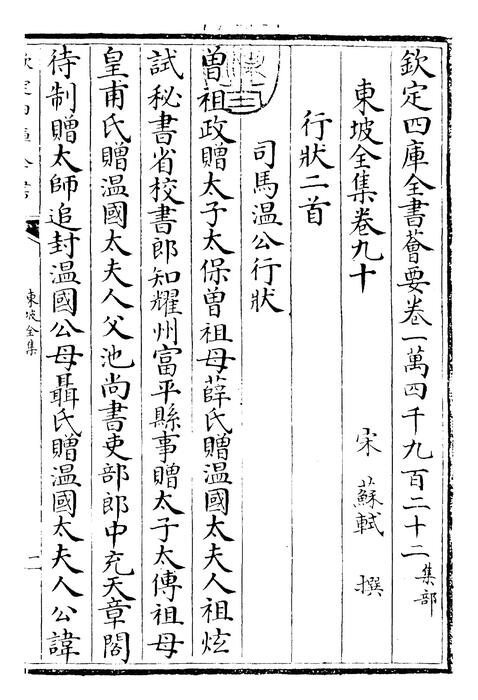 欽定四庫全書薈要卷一萬四千九百二十二集部
東坡全集卷九十 宋 蘇軾 撰
行狀二首
司馬溫公行狀
曾祖政贈太子太保曾祖母薛氏贈溫國太夫人祖炫
試秘書省校書郎知耀州富平縣事贈太子太傅祖母
皇甫氏贈溫國太夫人父池尚書吏部郎中充天章閣
待制贈太師追封溫國公母聶氏贈溫國太夫人公諱
欽定四庫全書
東坡全集